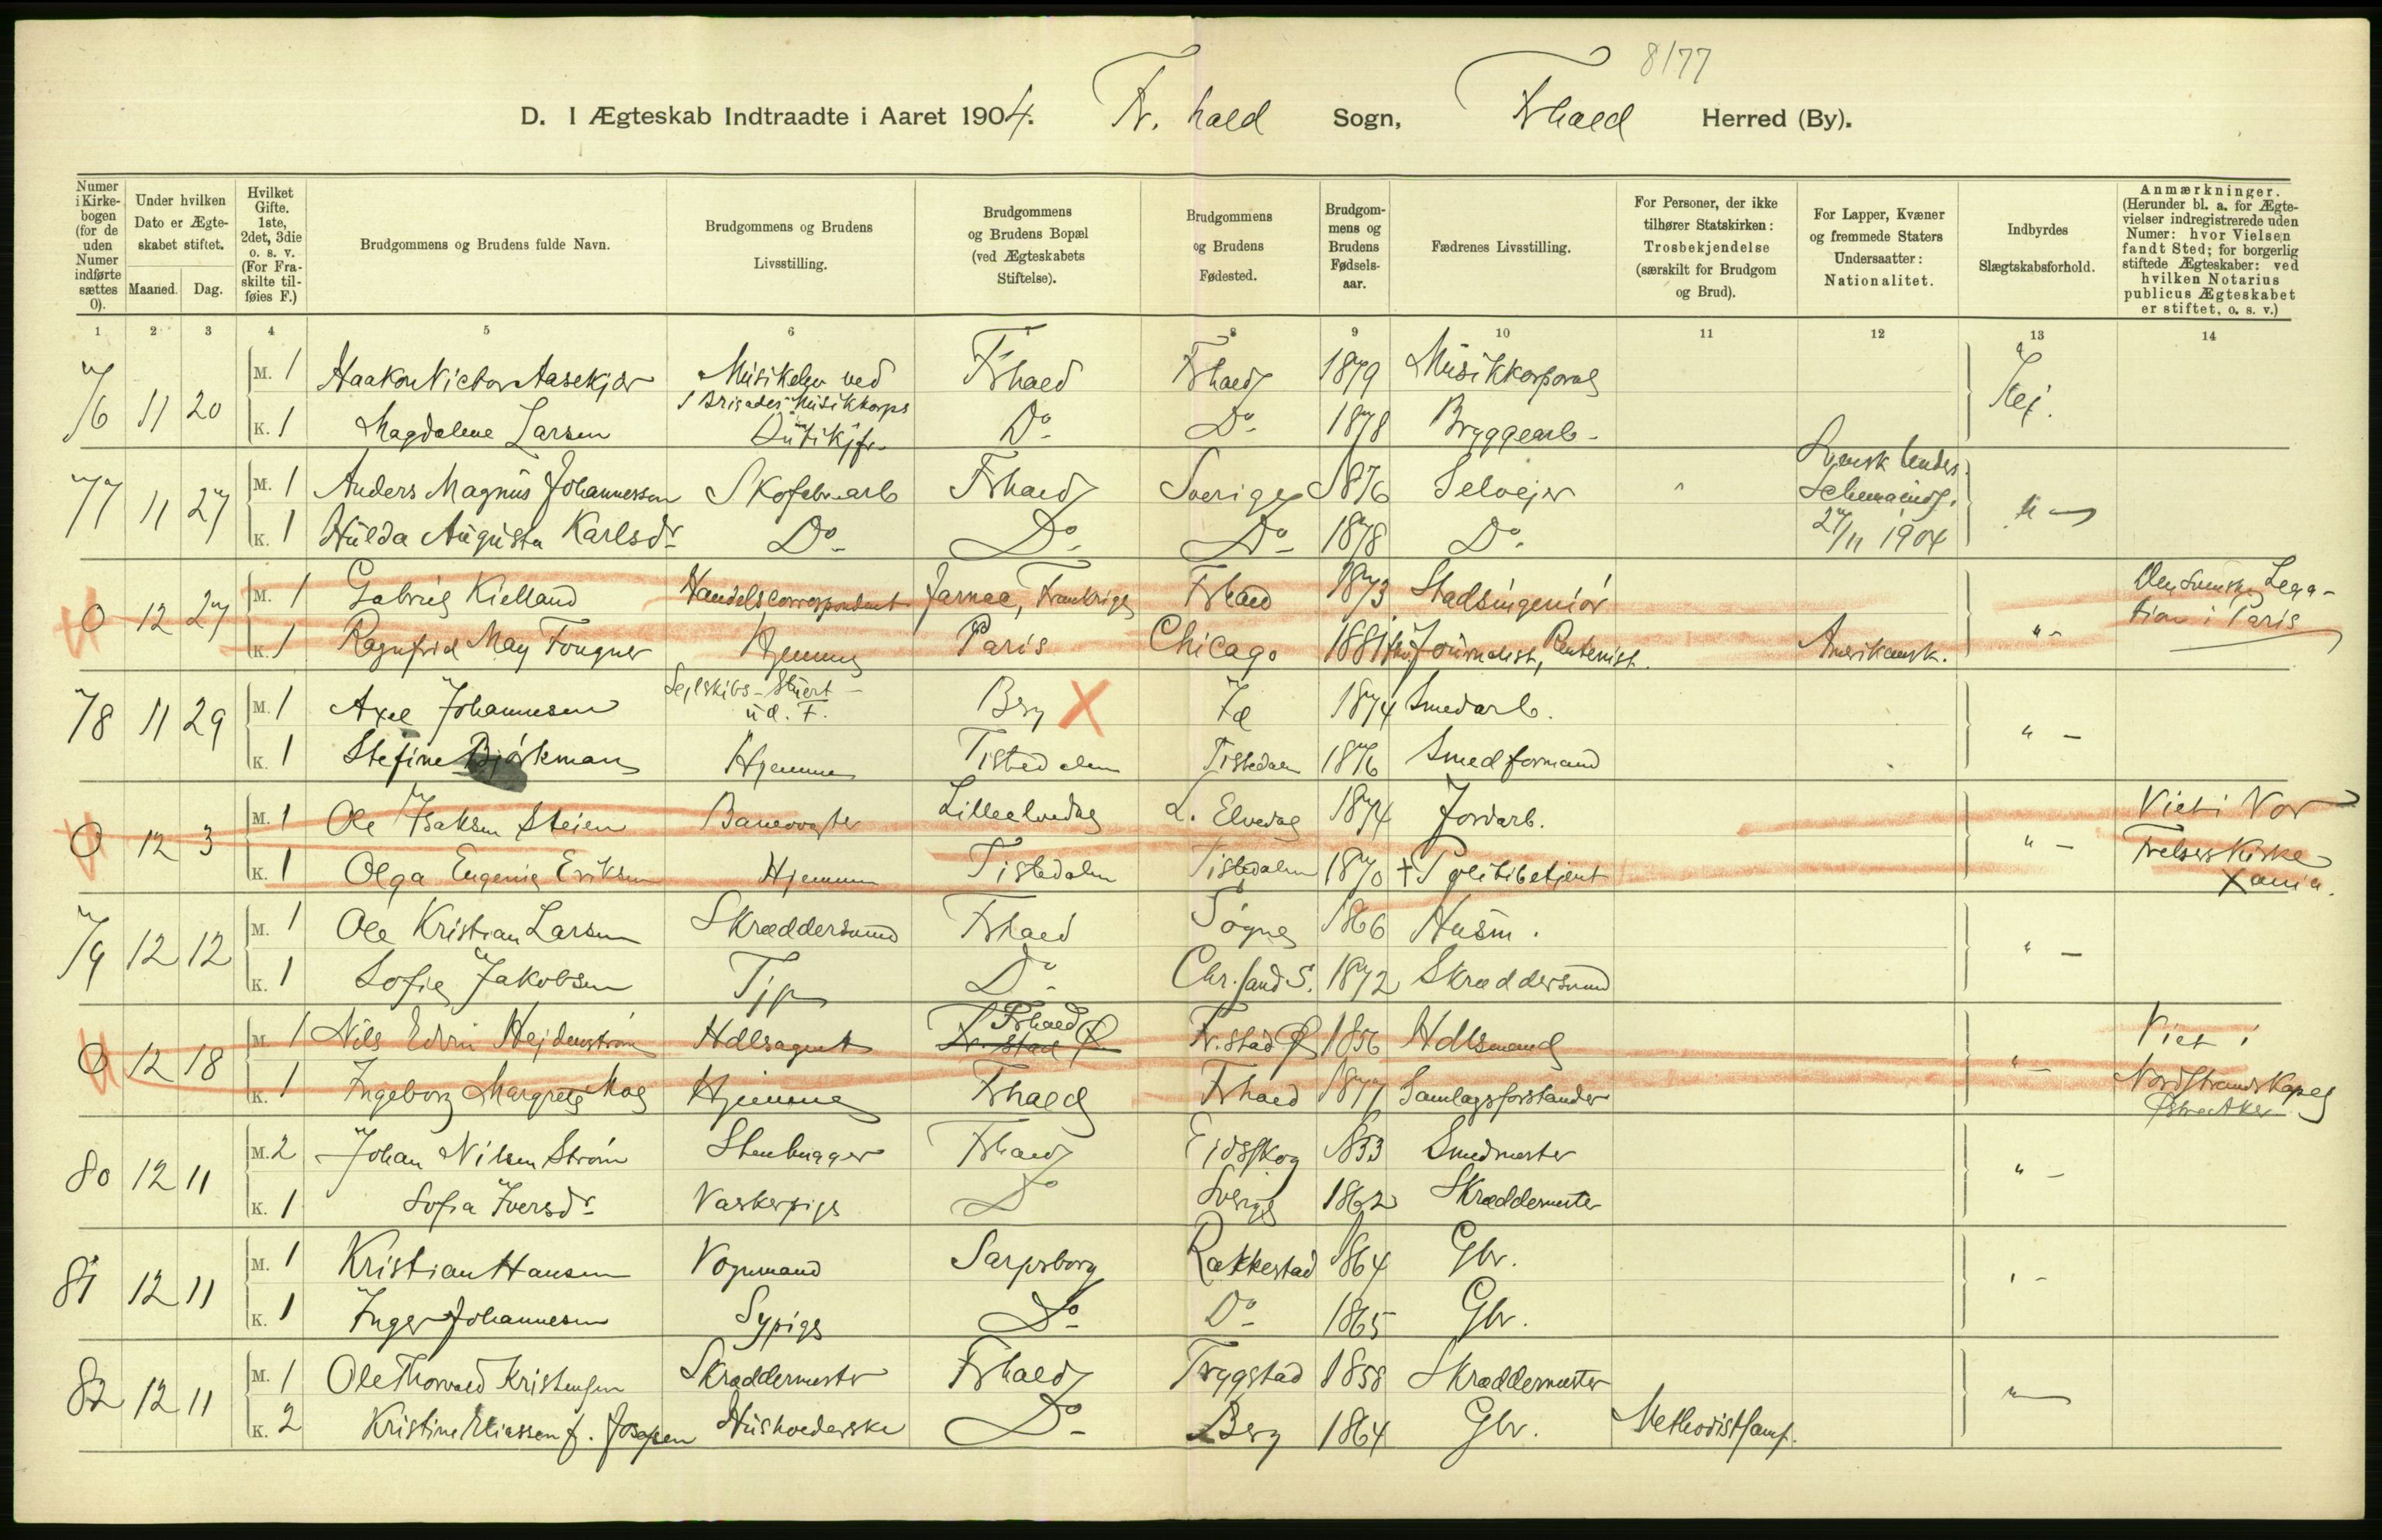 8/77
D. I Ægteskab Indtraadte i Aaret 1904. Fr. hald Sogn, Frhald Herred (By).
Numer i Kirkebogen (for de uden Numer indførte sættes 0).
Under hvilken Dato er Ægteskabet stiftet.
Maaned. Dag.
Hvilket Gifte. 1ste, 2det, 3die o. s. v. (For Fraskilte tilføies F.)
Brudgommens og Brudens fulde Navn.
Brudgommens og Brudens Livsstilling.
Brudgommens og Brudens Bopæl (ved Ægteskabets Stiftelse).
Brudgommens og Brudens Fødested.
Brudgommens og Brudens Fødselsaar.
Fædrenes Livsstilling.
For Personer, der ikke tilhører Statskirken: Trosbekjendelse (særskilt for Brudgom og Brud).
For Lapper, Kvæner og fremmede Staters Undersaatter: Nationalitet.
Indbyrdes Slægtskabsforhold.
Anmærkninger. (Herunder bl. a. for Ægtevielser indregistrerede uden Numer: hvor Vielsen fandt Sted; for borgerlig stiftede Ægteskaber: ved hvilken Notarius publicus Ægteskabet er stiftet, o. s. v.)
1 2 3 4 5 6 7 8 9 10 11 12 13 14
76 11 20 M. 1 Haakon Victor Aasekjær Musikelev ved 1 Brigades Musikkorps Frhald Frhald 1879 Musikkorporal Nej.
K. 1 Magdalene Larsen Butikjfr. Do. Do. 1878 Bryggearb.
77 11 27 M. 1 Anders Magnus Johannesson Skofabrarb Frhald Sverige 1876 Selvejer " Svensk Unders.
K. 1 Hulda Augusta Karlsdr. Do. Do. Do. 1878 Do. 27/11 1904 " -
0 12 27 M. 1 Gabriel Kielland Handelscorrespondent Jarnac, Frankrige Frhald 1873 Stadsingeniør Den svenske Legation i Paris
K. 1 Ragnfrid May Fougner Hjemme Paris Chicago 1881 Journalist, Rentenist. Amerikansk. " -
78 11 29 M. 1 Axel Johannesen Sejlskibs-Stuert ud. F. Berg X Id 1874 Smedarb.
K. 1 Stefine Bjørkman Hjemme Tistedalen Tistedalen 1876 Smedformand " -
0 12 3 M. 1 Ole Isaksen Steien Banevogter Lilleelvedal L. Elvedal 1874 Jordarb. Viet i Vor
K. 1 Olga Eugenie Eriksen Hjemme Tistedalen Tistedalen 1870 † Politibetjent " - Frelsers Kirke Xania.
79 12 12 M. 1 Ole Kristian Larsen Skræddersvend Frhald Søgne 1866 Husm.
K. 1 Sofie Jakobsen Tjp Do. Chr.sand S. 1872 Skræddersvend " -
0 12 18 M. 1 Nils Edvin Hejdenstrøm Hdlsagent Frhald Fr.stad Ø Fr.stad Ø 1856 Hdlsmand Viet i
K. 1 Ingeborg Margrete Moe Hjemme Frhald Frhald 1877 Samlagsforstander " - Nordstrands Kapel Østre Aker
80 12 11 M. 2 Johan Nilsen Strøm Stenhugger Frhald Eidsskog 1853 Smedmester
K. 1 Sofia Iversdr. Vaskerpige Do Sverige 1862 Skræddermester " -
81 12 11 M. 1 Kristian Hansen Vognmand Sarpsborg Rakkestad 1864 Gbr.
K. 1 Inger Johannesen Sypige Do. Do. 1865 Gbr. " -
82 12 11 M. 1 Ole Thorvald Kristensen Skræddermester Frhald Trygstad 1858 Skræddermester
K. 2 Kristine Eliassen f. Josefsen Husholderske Do. Berg 1864 Gbr. Methodistsamf. "